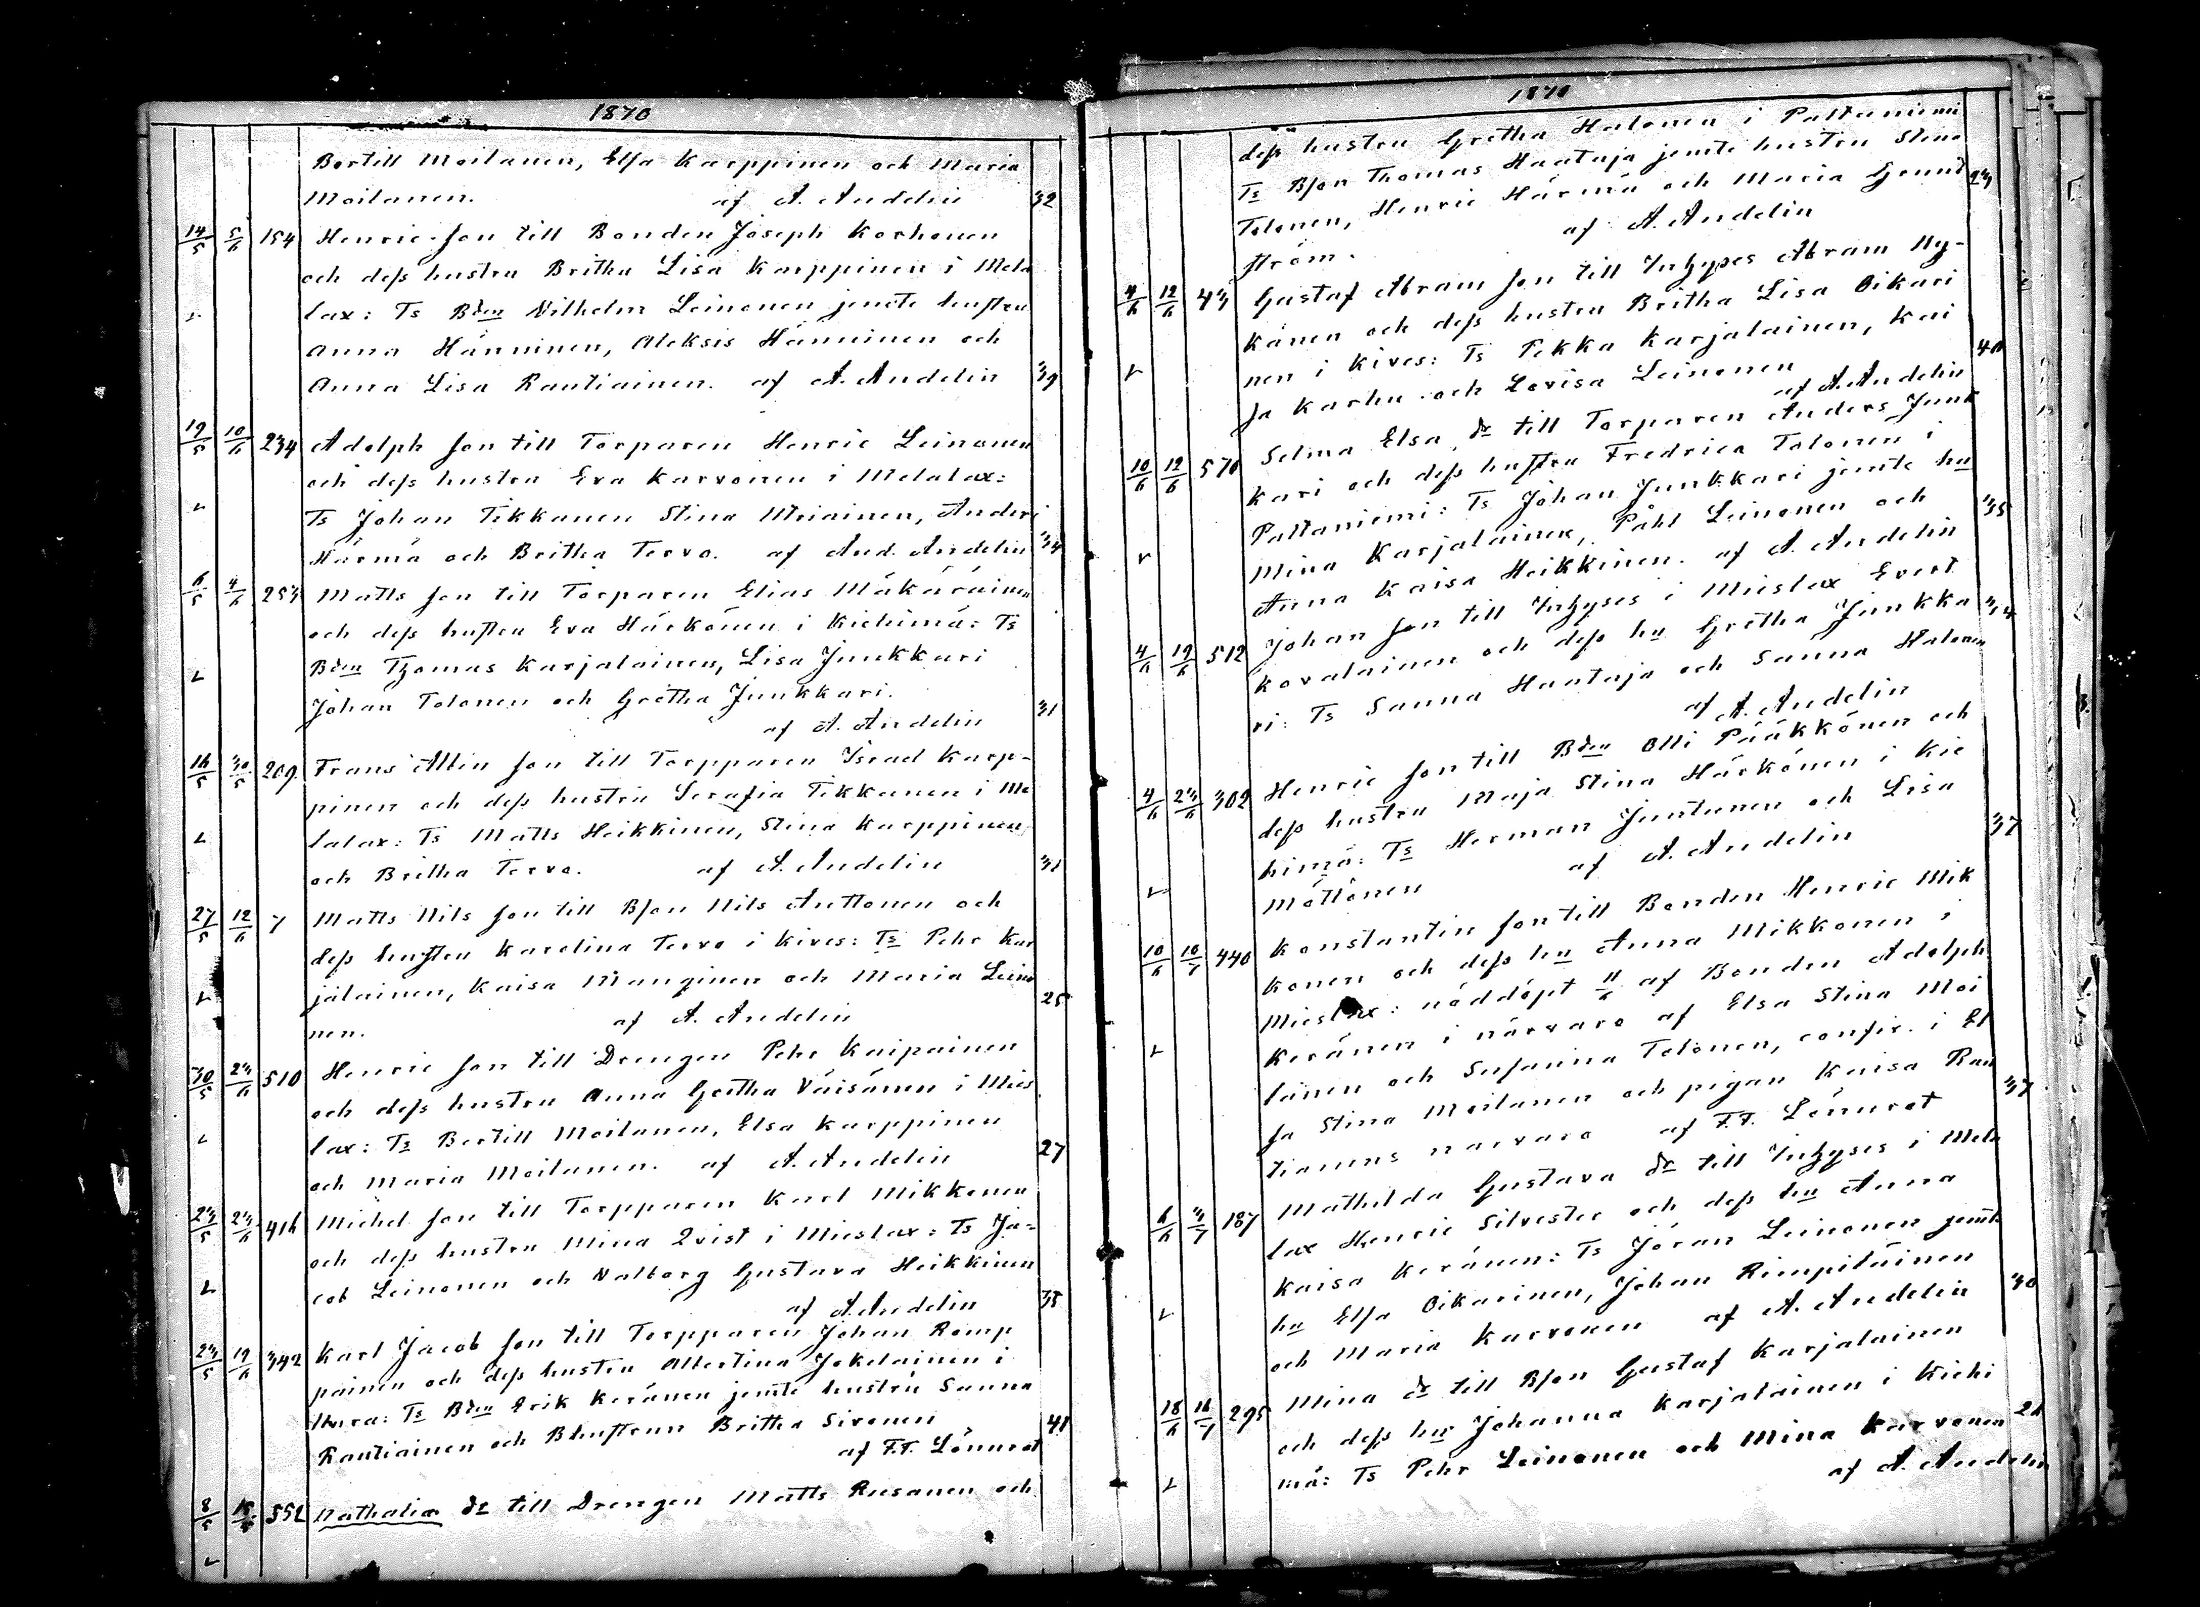 1870
Bertill Moilanen, Elsa Karppinen och Maria
Moilanen. af A. Andelin 32
14/5 5/6 154 Henric son till Bonden Joseph Korhonen
och dess hustru Britha Lisa Karppinen i Mela
lax: Ts Bden Vilhelm Leinonen jemte hustru
Anna Hänninen, Aleksis Hänninen och
Anna Lisa Rautiainen. af A. Andelin 39
19/5 10/6 234 Adolph son till Torparen Henric Leinonen
och dess hustru Eva Karvonen i Melalax:
Ts Johan Tikkanen Stina Moiainen, Anders
Härmä och Britha Tervo. af And. Andelin 34
6/5 4/6 253 Matts son till Torparen Elias Mäkäräinen
och dess hustru Eva Härkönen i Kiehimä: Ts
Bden Thomas Karjalainen, Lisa Junkkari
Johan Tolonen och Gretha Junkkari.
af A. Andelin 31
16/5 30/5 209 Frans Albin son till Torpparen Israel Karp-
pinen och dess hustru Serafia Tikkanen i Me
lalax: Ts Matts Heikkinen, Stina Karppinen,
och Britha Tervo. af A. Andelin 31
27/5 12/6 7 Matts Nils son till Bson Nils Anttonen och
dess hustru Karolina Tervo i Kives: Ts Pehr Kar
jalainen, Kaisa Manginen och Maria Leino
nen. af A. Andelin 25
30/5 23/6 510 Henric son till Drengen Pehr Kaipainen
och dess hustru Anna Gretha Väisänen i Mies
lax: Ts Bertill Moilanen, Elsa Karppinen
och Maria Moilanen. af A. Andelin 27
23/5 23/6 416 Michel son till Torpparen Karl Mikkonen
och dess hustru Mina Qvist i Mieslax: Ts Ja-
cob Leinonen och Valborg Gustava Heikkinen
af A. Andelin 35
23/5 19/6 342 Karl Jacob son till Torpparen Johan Romp
painen och dess hustru Albertina Jokelainen i
Ts Bden Erik Keränen jemte hustru Sanna
Rautiainen och Bhustrun Britha Sirenen 41
af F.F. Lönnrot
8/5 552 Nathalia dr till Drengen Matts Rusanen och
1870
dess hustru Gretha Halonen i Paltaniemi
Ts Bson Thomas Haataja jemte hustru Stina
Tolonen, Henric Härmä och Maria Grund 23
ström. af A. Andelin
4/6 12/6 43 Gustaf Abram son till Inhyses Abram Ny-
känen och dess hustru Britha Lisa Oikari
nen i Kives: Ts Pekka Karjalainen, Kai
sa Karhu och Lovisa Leinonen 40
af A. Andelin
10/6 12/6 570 Selma Elsa dr till Torparen Anders Junk
kari och dess hustru Fredrica Tolonen i
Paltaniemi: Ts Johan Junkkari jemte hu
Mina Karjalainen, Påhl Leinonen och 35
Anna Kaisa Heikkinen. af A. Andelin
4/6 19/6 512 Johan son till Inhyses i Mieslax Evert
Kovalainen och dess hu Gretha Junkka
ri: Ts Sanna Haataja och Sanna Halonen
af A. Andelin
4/6 23/6 302 Henric son till Bden Olli Pääkkönen och
dess hustru Maja Stina Härkönen i Kie
himä: Ts Herman Juntunen och Lisa
Möttönen af A. Andelin 37
10/6 10/7 440 Konstantin son till Bonden Henric Mik
konen och dess hu Anna Mikkonen i
Mieslax: nöddöpt 11/6 af Bonden Adolph
Keränen i närvaro af Elsa Stina Moi
lanen och Susanna Tolonen, confir. i El
sa Stina Moilanen och pigan Kaisa Rau
tiainens närvaro af F.F. Lönnrot 37
6/6 3/7 187 Mathilda Gustava dr till Inhyses i Mela
lax Henric Silvester och dess hu Anna
Kaisa Keränen: Ts Jöran Leinonen jemte
hu Elsa Oikarinen, Johan Rimpiläinen
och Maria Karvonen af A. Andelin 30
18/6 16/7 295 Mina dr till Bson Gustaf Karjalainen
och dess hu Johanna Karjalainen i Kiehi
mä: Ts Pehr Leinonen och Mina Karvonen 21
af A. Andelin